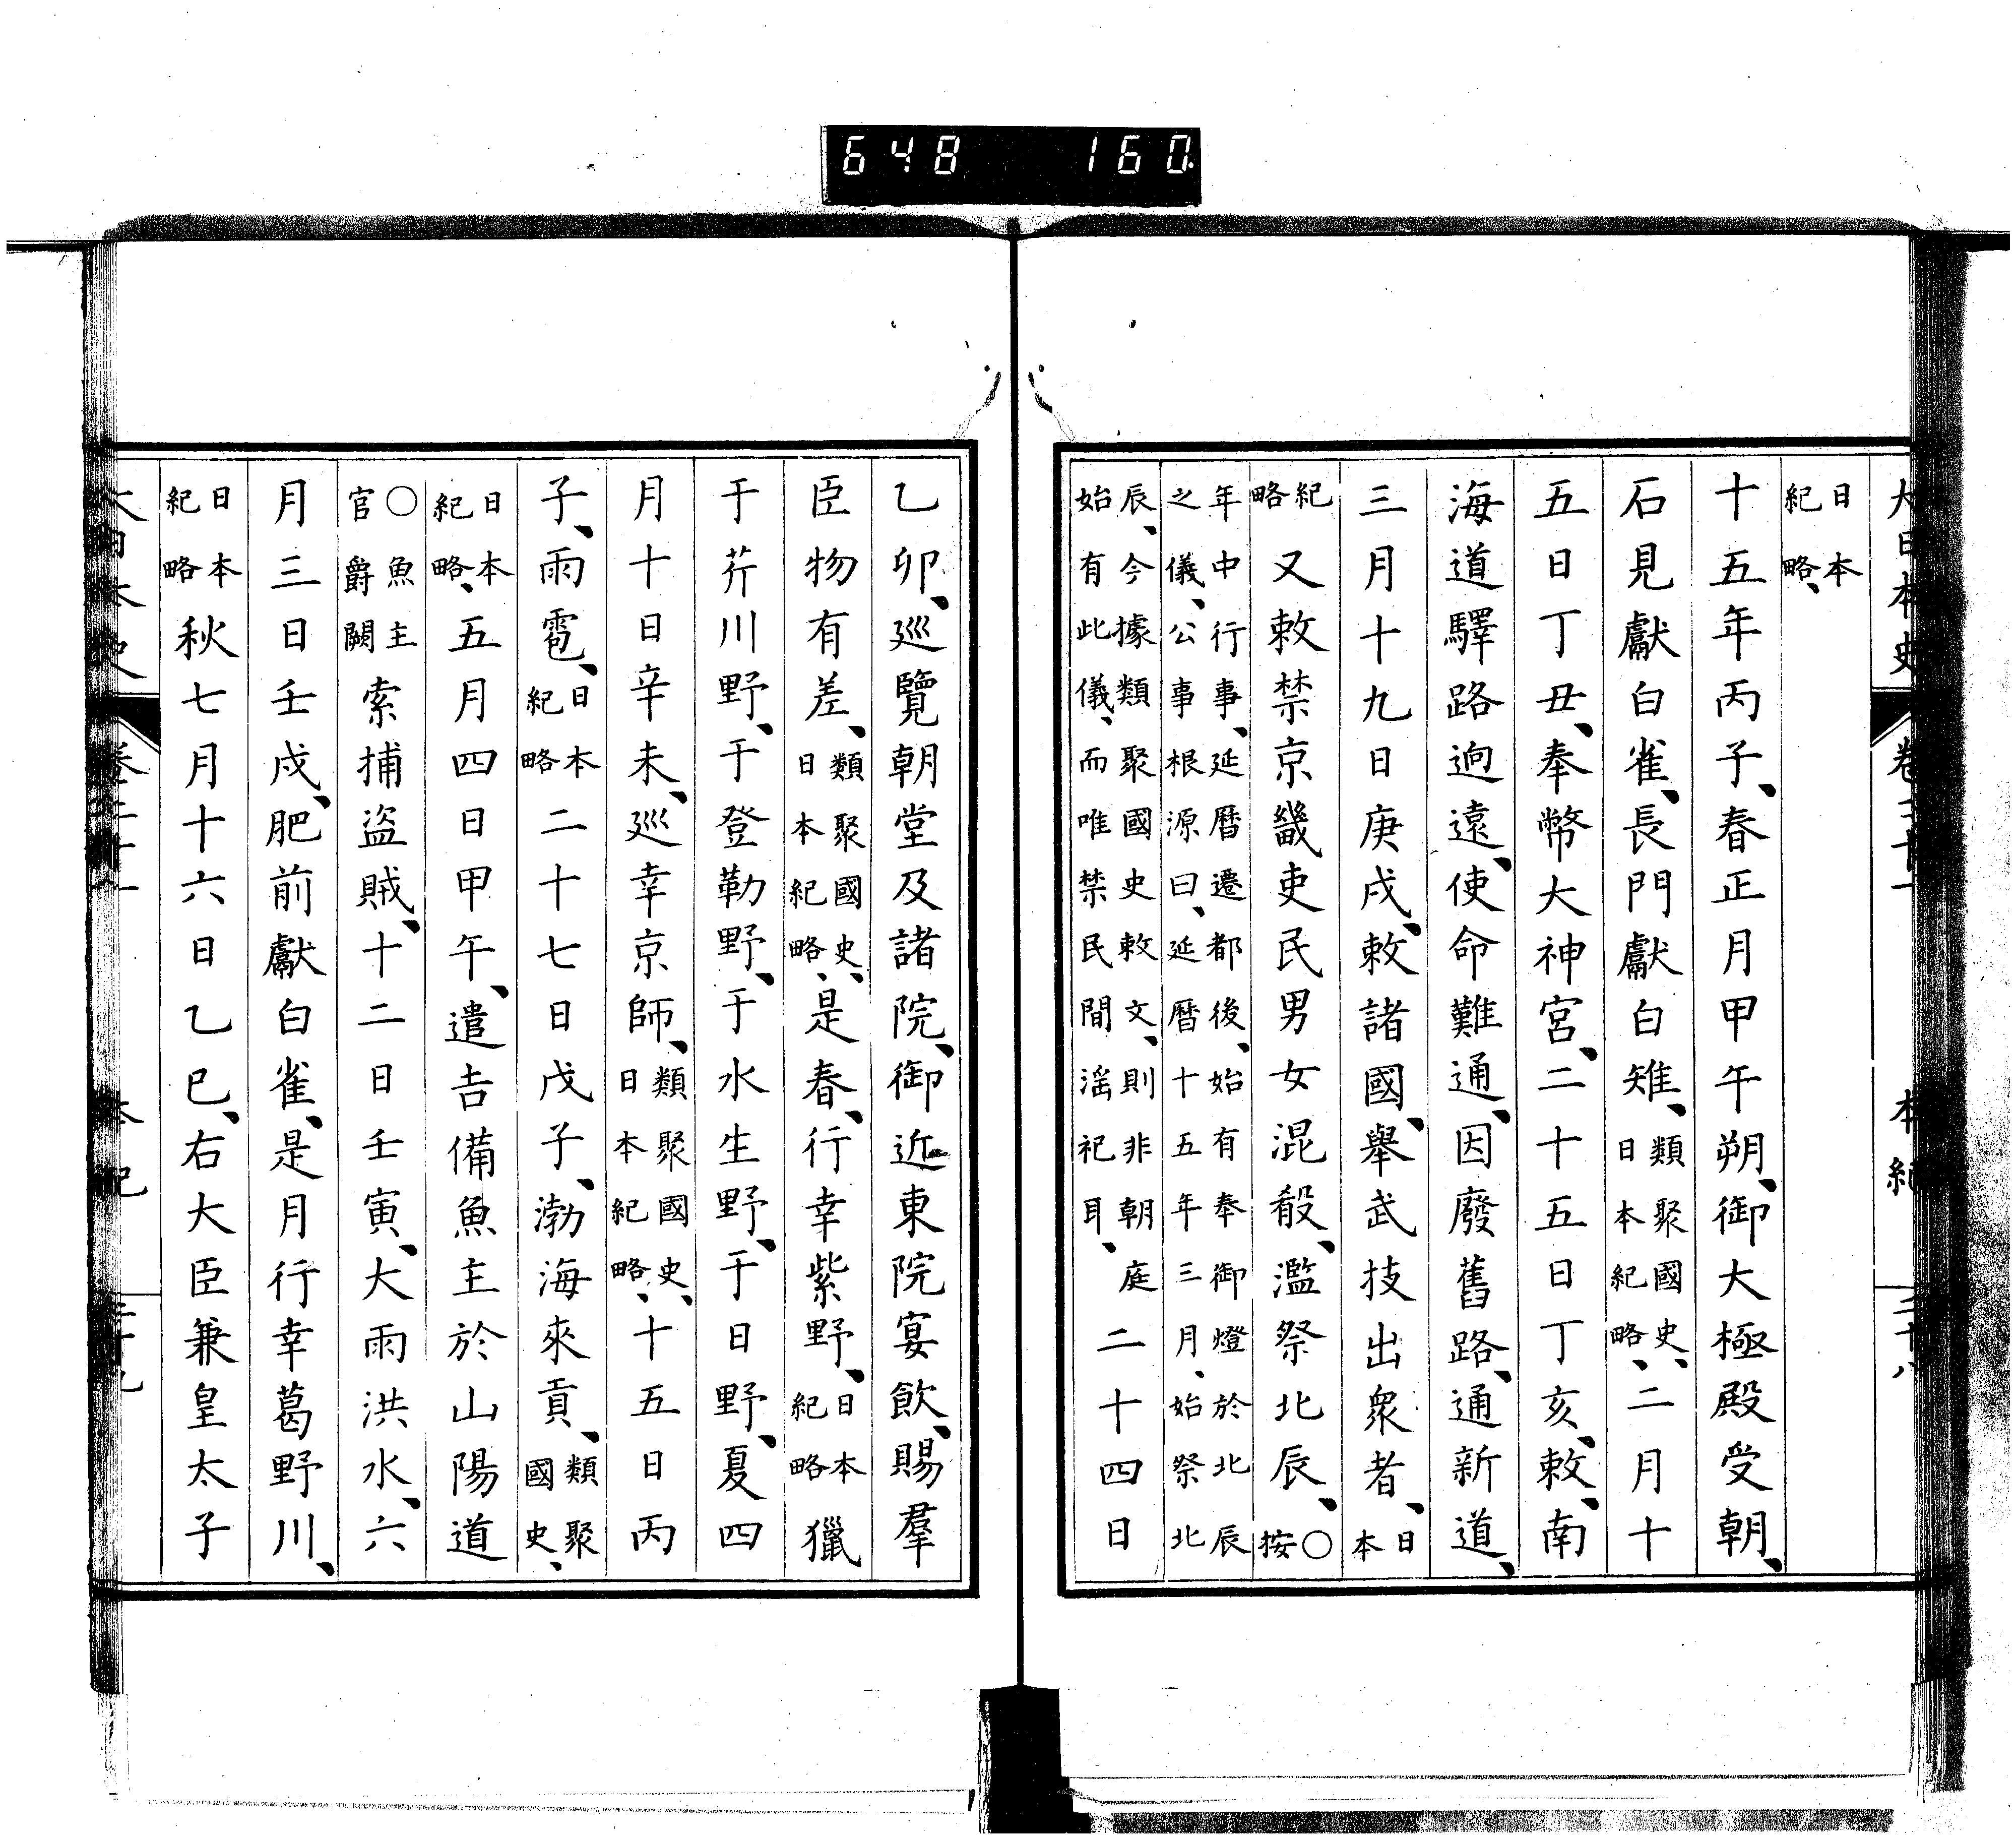 648 160
大日本史 卷二十一 本紀 二十八
日本紀略、
十五年丙子、春正月甲午朔、御大極殿受朝、
石見獻白雀、長門獻白雉、類聚國史、日本紀略、二月十
五日丁丑、奉幣大神宮、二十五日丁亥、敕、南
海道驛路逈遠、使命難通、因廢舊路、通新道、
三月十九日庚戌、敕諸國、舉武技出衆者、日本
紀略又敕禁京畿吏民男女混殽、濫祭北辰、○按
年中行事、延曆遷都後、始有奉御燈於北辰
之儀、公事根源曰、延曆十五年三月、始祭北
辰、今據類聚國史敕文、則非朝庭
始有此儀、而唯禁民間淫祀耳、二十四日
乙卯、巡覽朝堂及諸院、御近東院宴飲、賜羣
臣物有差、類聚國史、日本紀略、是春、行幸紫野、日本紀略獵
于芥川野、于登勒野、于水生野、于日野、夏四
月十日辛未、巡幸京師、類聚國史、日本紀略、十五日丙
子、雨雹、日本紀略二十七日戊子、渤海來貢、類聚國史、
日本紀略、五月四日甲午、遣吉備魚主於山陽道
○魚主官爵闕索捕盜賊、十二日壬寅、大雨洪水、六
月三日壬戌、肥前獻白雀、是月行幸葛野川、
日本紀略秋七月十六日乙巳、右大臣兼皇太子
大日本史 卷二十一 本紀